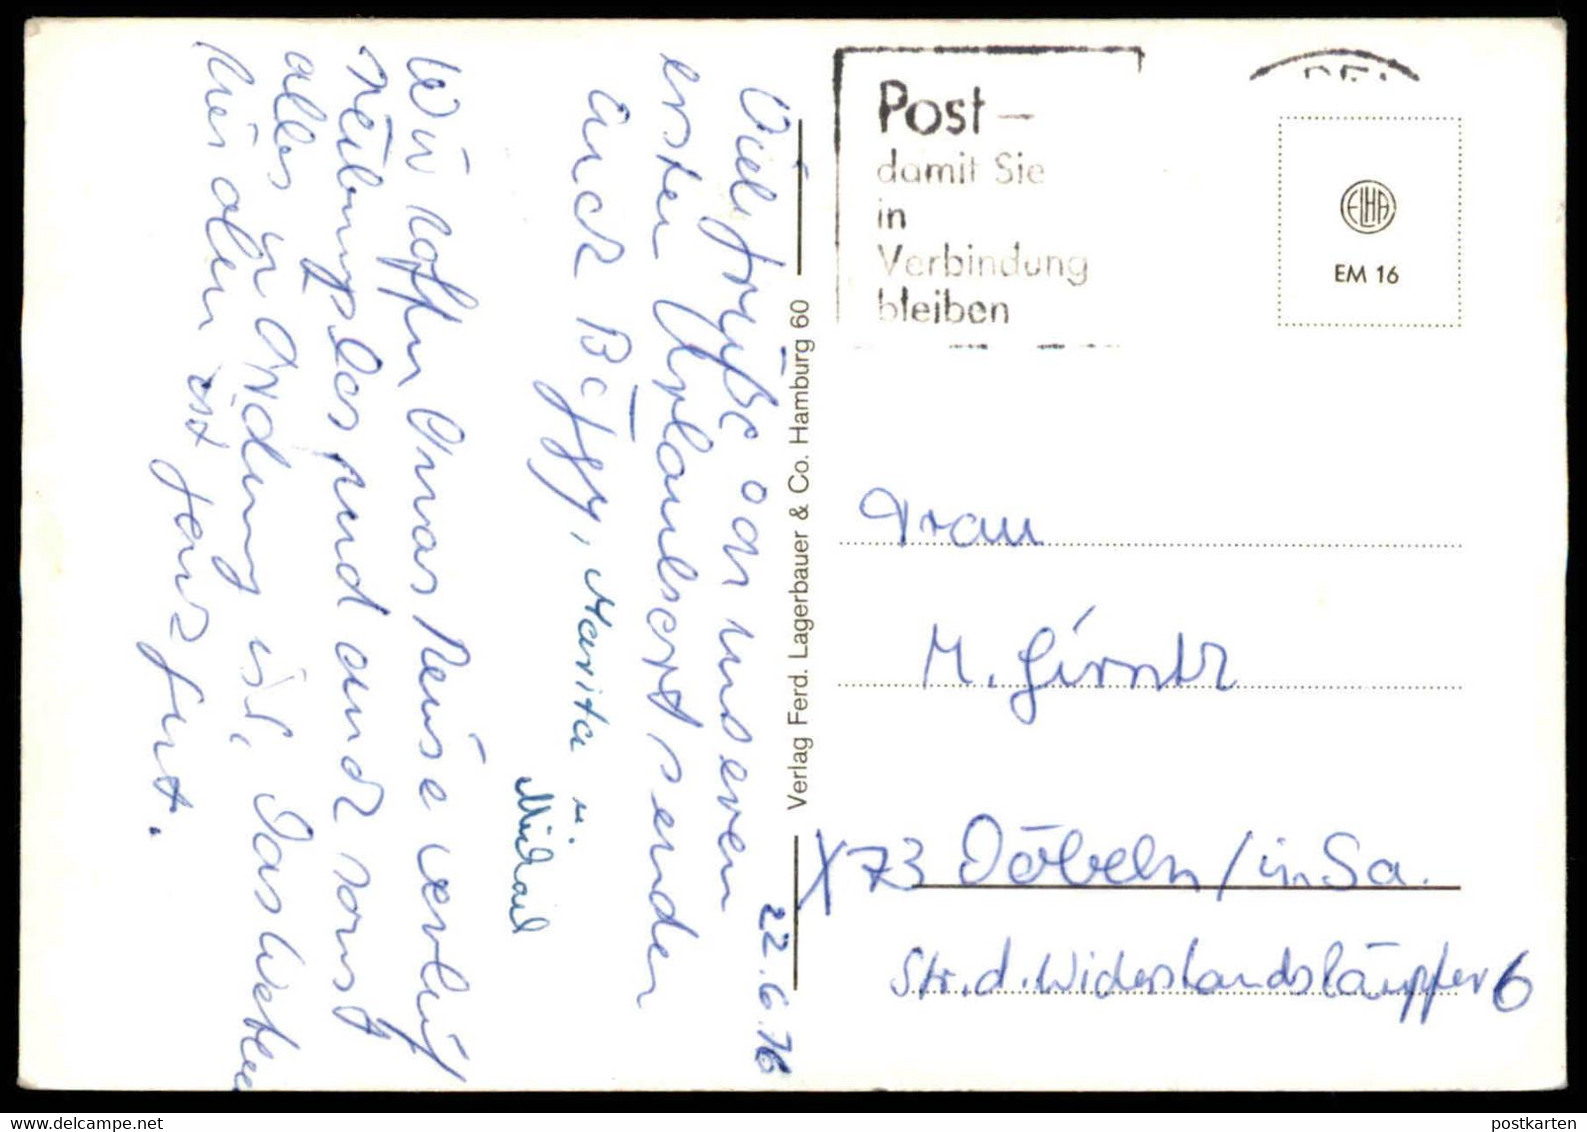 22.6.76
Viele Grüße von unserem
ersten Urlaubsort senden
auch Beggy, Marita u.
Michael
Wir hoffen Omas Reise verlief
reibungslos und auch sonst
alles in Ordnung ist. Das Wetter
hier oben ist ganz gut.
Verlag Ferd. Lagerbauer & Co. Hamburg 60
Post –
damit Sie
in
Verbindung
bleiben
ELHA
EM 16
Frau
M. Girntz
X 73 Döbeln / in Sa.
Str. d. Widerstandskämpfer 6
postkarten